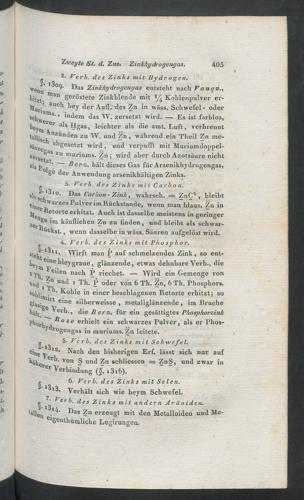 Zweyte St. d. Zns. Zinkhydrogengas. 405
2. Verb. des Zinks mit Hydrogen.
§. 1309. Das Zinkhydrogengas entsteht nach Vauqu.,
wenn man geröstete Zinkblende mit 1/4 Kohlenpulver er-
hitzt; auch bey der Aufl. des Zn in wäss. Schwefel- oder
Muriums., indem das W. zersetzt wird. — Es ist farblos,
schwerer als Hgas, leichter als die amt. Luft, verbrennt
beym Anzünden zu W. und Zn, während ein Theil Zn me-
tallisch abgesetzt wird, und verpufft mit Muriumdoppel-
säuregas zu muriums. Zn; wird aber durch Azotsäure nicht
zersetzt. — Berz. hält dieses Gas für Arsenikhydrogengas,
als Folge der Anwendung arsenikhältigen Zinks.
3. Verb. des Zinks mit Carbon.
§. 1310. Das Carbon-Zink, wahrsch. = ZnC, bleibt
als schwarzes Pulver im Rückstande, wenn man blaus. Zn in
einer Retorte erhitzt. Auch ist dasselbe meistens in geringer
Menge im käuflichen Zn zu finden, und bleibt als schwar-
zer Rückst., wenn dasselbe in wäss. Säuren aufgelöst wird.
4. Verb. des Zinks mit Phosphor.
§. 1311. Wirft man P auf schmelzendes Zink, so ent-
steht eine bleygraue, glänzende, etwas dehnbare Verb., die
beym Feilen nach P riechet. — Wird ein Gemenge von
1 Th. Zn und 1 Th. P oder von 6 Th. Zn, 6 Th. Phosphors.
und 1 Th. Kohle in einer beschlagenen Retorte erhitzt; so
sublimirt eine silberweisse, metallglänzende, im Bruche
glasige Verb., die Berz. für ein gesättigtes Phosphorzink
hält. — Rose erhielt ein schwarzes Pulver, als er Phos-
phorhydrogengas in muriums. Zn leitete.
5. Verb. des Zinks mit Schwefel.
§. 1312. Nach den bisherigen Erf. lässt sich nur auf
eine Verb. von S und Zn schliessen = ZnS, und zwar in
näherer Verbindung (§. 1316).
6. Verb. des Zinks mit Selen.
§. 1313. Verhält sich wie beym Schwefel.
7. Verb. des Zinks mit andern Aröoiden.
§. 1314. Das Zn erzeugt mit den Metalloiden und Me-
tallen eigenthümliche Legirungen.